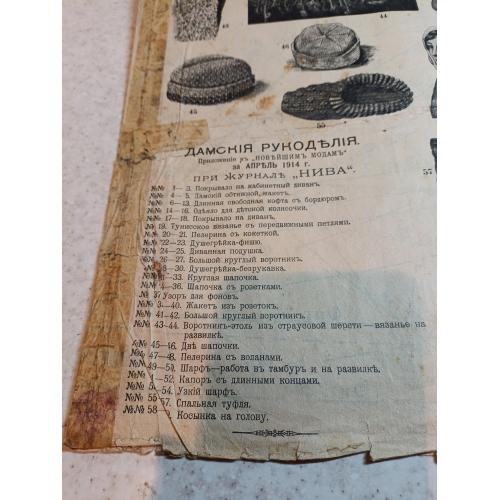 43
44
46
45
55
57
ДАМСКІЯ РУКОДѢЛІЯ.
Приложеніе къ „НОВѢЙШИМЪ МОДАМЪ“
за АПРѢЛЬ 1914 г.
ПРИ ЖУРНАЛѢ „НИВА“.
№№ 1— 3. Покрывало на кабинетный диванъ.
№№ 4— 5. Дамскій обтяжной жакетъ.
№№ 6—13. Длинная свободная кофта съ бордюромъ.
№№ 14—16. Одѣяло для дѣтской колясочки.
№№ 17—18. Покрывало на диванъ.
№ 19. Тунисское вязанье съ передвижными петлями.
№№ 20—21. Пелерина съ кокеткой.
№№ 22—23. Душегрѣйка-фишю.
№№ 24—25. Диванная подушка.
№№ 26—27. Большой круглый воротникъ.
№№ 28—30. Душегрѣйка-безрукавка.
№№ 31—33. Круглая шапочка.
№№ 4—36. Шапочка съ розетками.
№ 37 Узоръ для фоновъ.
№№ 3—40. Жакетъ изъ розетокъ.
№№ 41—42. Большой круглый воротникъ.
№№ 43-44. Воротникъ-этоль изъ страусовой шерсти—вязанье на
развилкѣ.
№№ 45—46. Двѣ шапочки.
№№ 47—48. Пелерина съ воланами.
№№ 49—50. Шарфъ—работа въ тамбуръ и на развилкѣ.
№№ 51—52. Капоръ съ длинными концами.
№№ 5—54. Узкій шарфъ.
№№ 55—57. Спальная туфля.
№№ 58— Косынка на голову.